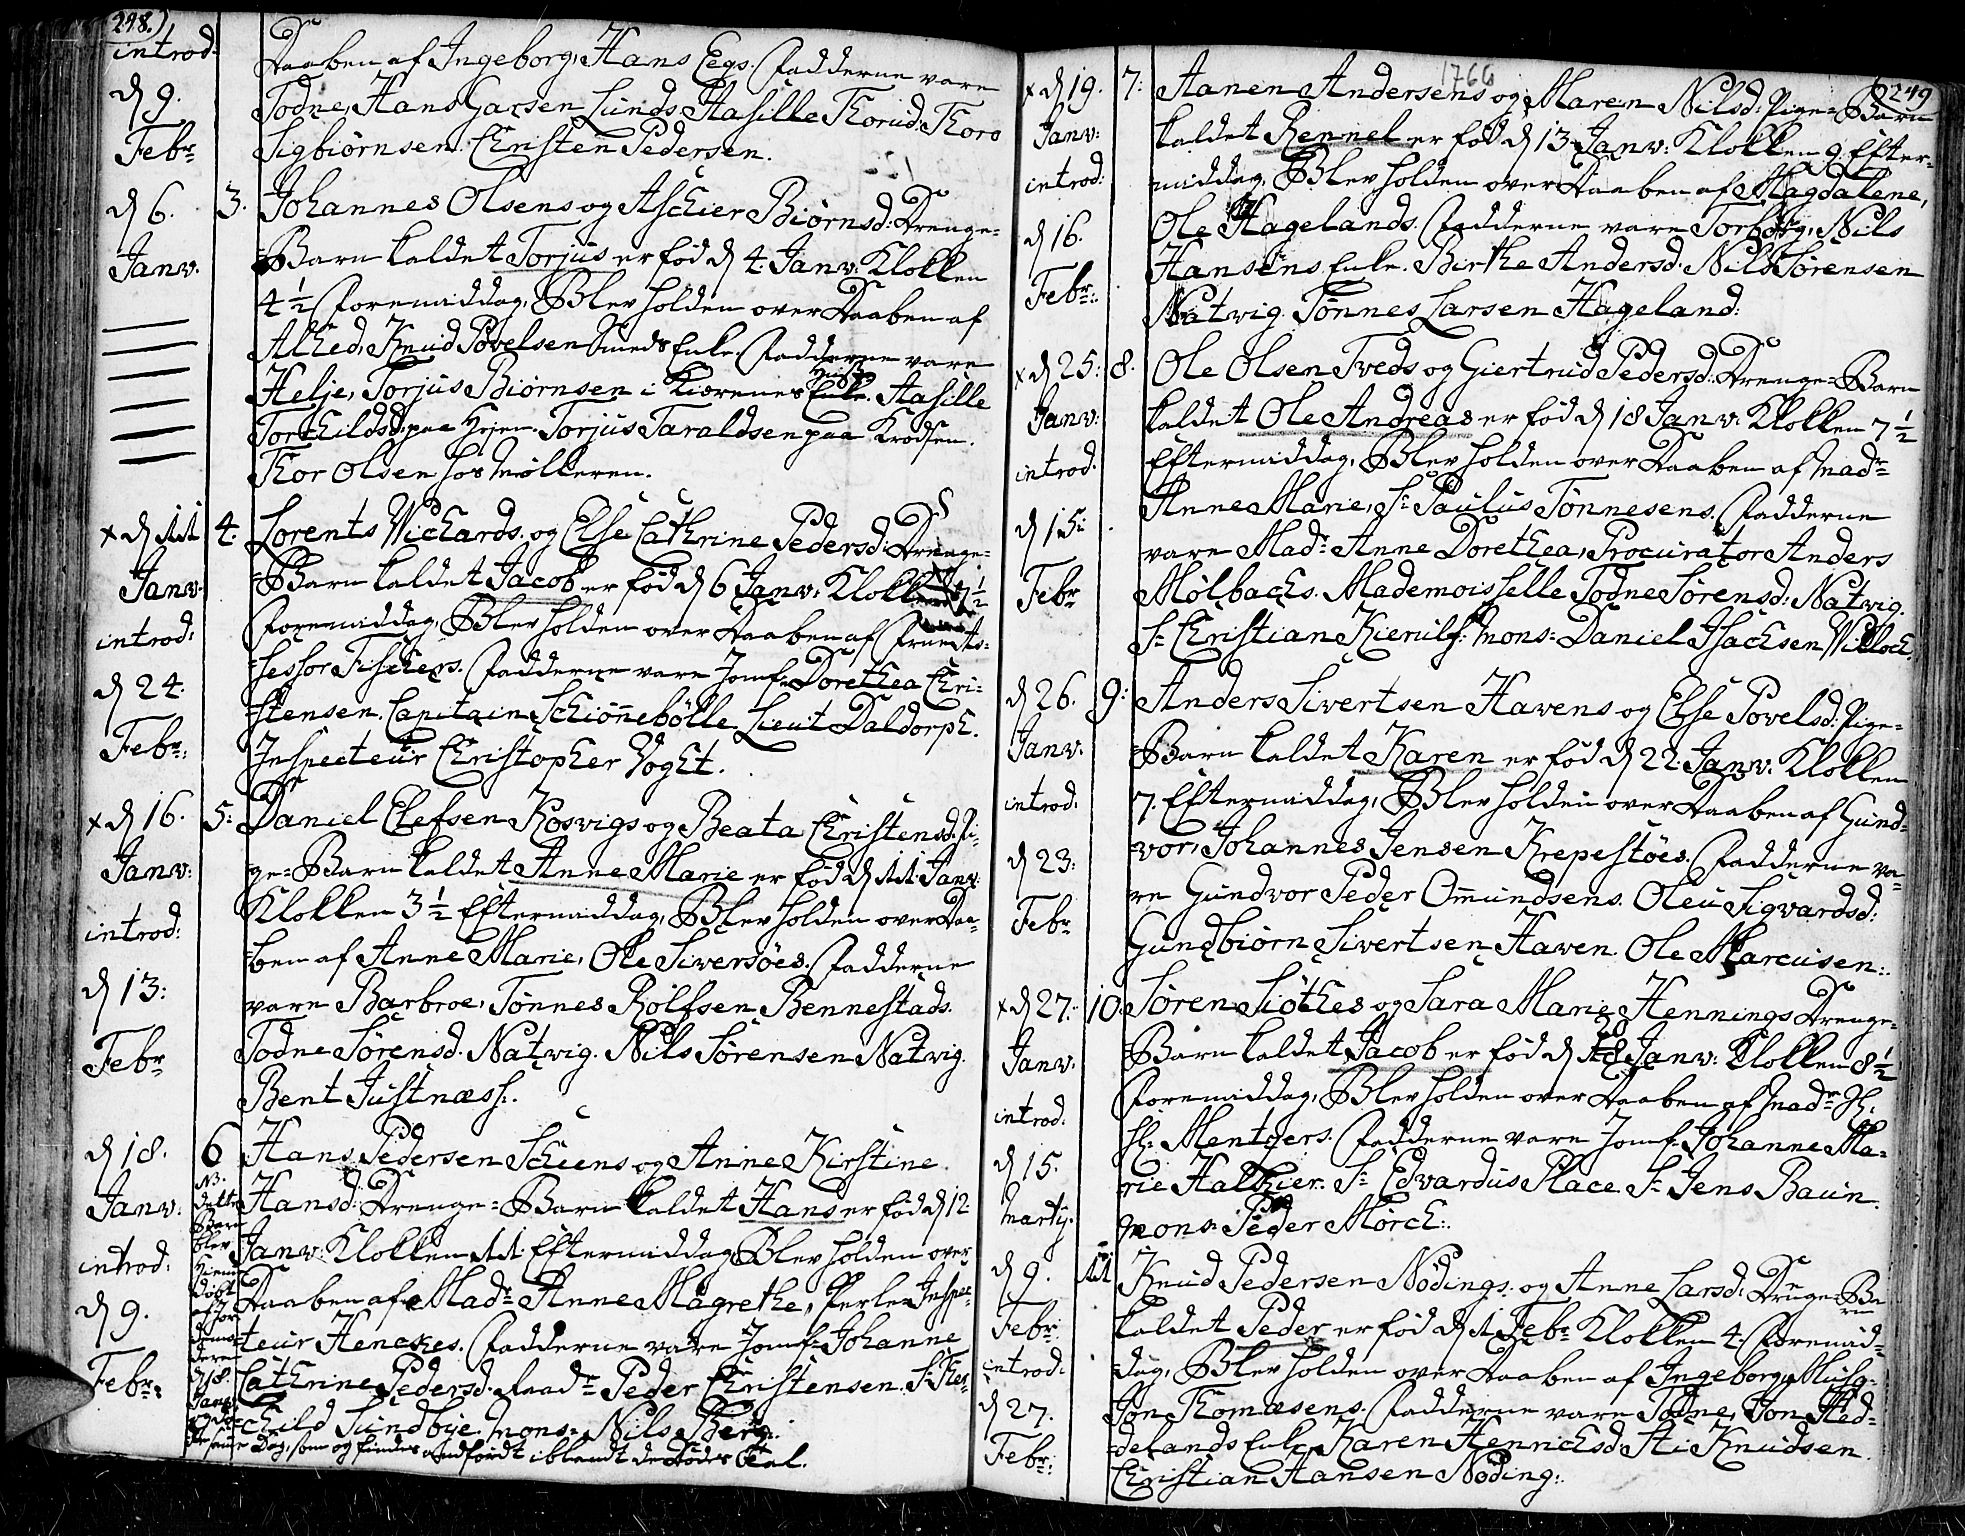 248.)
introd:
d 9.
Febr
Daaben af Ingeborg, Hans Eegs. Fadderne vare
Todne, Hans Garsen Lunds. Aasille Thorud. Thoro
Sigbiörnsen. Christen Pedersen.
d 6. 3.
Janv.
Johannes Olsens og Aschier Biörnsd: Drenge-
Barn kaldet Torjus er föd d 4. Janv. Klokken
4½ Foremiddag, Blev holden over Daaben af
Alhed, Knud Povelsen Smeds Enke. Fadderne vare
Helje, Torjus Biörnsen i Kiærenes Enke. Aasille
Torchildsd. paa Hejen. Torjus Taraldsen paa Krodsen.
Thor Olsen hos Mölleren.
x d 11 4.
Janv.
introd:
d 24.
Febr:
Lorents Wichards. og Else Cathrine Pedersd: Drenge-
Barn kaldet Jacob er föd d 6 Janv. Klokken ½
Foremiddag, Blev holden over Daaben af Frue As-
sessor Fischers. Fadderne vare Jomf: Dorethea Chri-
stensen. Capitain Schionnebölle. Lieut Daldorph.
Inspecteur Christopher Voght.
x d 16. 5:
Janv:
introd:
d 13:
Febr
Daniel Elefsen Kosvigs og Beata Christensd: Pi-
ge-Barn kaldet Anne Marie er föd d 11 Janv.
Klokken 3½ Eftermiddag, Blev holden over Daa-
ben af Anne Marie, Ole Siversöes. Fadderne
vare Barbroe, Tönnes Rolfsen Bennestads.
Todne Sörensd. Natvig. Nils Sörensen Natvig.
Bent Justnæss:.
d 18. 6
Janv:
introd:
d 9.
Febr:
Hans Pedersen Scheens og Anne Kirstine
Hansd: Drenge-Barn kaldet Hans er föd d 12.
Janv: Klokken 11 Eftermiddag, Blev holden over
Daaben af Mad: Anne Magrethe, Perle-Inspec-
teur Henckes. Fadderne vare Jomf: Johanne
Cathrine Pedersd. Raadr Peder Christensen. Sr Ther-
child Sundbye. Mons: Nils Berg.
NB.
dette
Barn
blev
hieme
döbt
af Jor
demo-
deren
d 18.
Janv.
og döe-
de same Dag, som og findes anfördt iblandt de Dödes Tal.
1766
(249
x d 19. 7:
Janv:
introd:
d 16.
Febr:
Aanen Andersens og Maren Nilsd: Pige-Barn
kaldet Rennel er föd d 13 Janv: Klokken 9. Efter-
middag, Blev holden over Daaben af Magdalene,
Ole Hagelands. Fadderne vare Torborg, Nils
Hansens Enke. Birthe Andersd. Nils Sörensen
Natvig. Tönnes Larsen Hageland:
x d 25: 8.
Janv:
introd:
d 15:
Febr
Ole Olsen Tveds og Giertrud Pedersd: Drenge-Barn
kaldet Ole Andreas er föd d 18 Janv: Klokken 7½
Eftermiddag, Blev holden over Daaben af Madr
Anne Marie, Sr Paulus Tönnesens. Fadderne
vare Madr Anne Dorethea, Procurator Anders
Mölbachs. Mademoisselle Todne Sörensd: Natvig.
Sr Christian Kierulf: Mons: Daniel Isachsen Willoch.
d 26. 9:
Janv.
introd:
d 23:
Febr
Anders Sivertsen Havens og Else Povelsd: Pige-
Barn kaldet Karen er föd d 22. Janv. Klokken
7. Eftermiddag, Blev holden over Daaben af Gund-
vor, Johannes Jensen Krepestöes. Fadderne va-
re Gundvor Peder Omundsens. Oleu Sigvardsd:
Gundbiörn Sivertsen Haven. Ole Marcusen:.
x d 27. 10.
Janv.
introd:
d 15.
Martj.
Sören Siöthes og Sara Marie Hennings Drenge-
Barn kaldet Jacob er föd d 20 Janv: Klokken 8½
Foremiddag, Blev holden over Daaben af Madr Sl:
Hl: Mentgers. Fadderne vare Jomf: Johanne Ma-
rie Halkier. Sr Edvardus Place. Sr Jens Baun.
Mons: Peder Mörch:.
d 9. 11
Febr:
introd:
d 27.
Febr:
Knud Pedersen Nödings. og Anne Larsd: Drenge-Ba
rn
kaldet Peder er föd d 1 Febr Klokken 4. Foremid-
dag, Blev holden over Daaben af Ingeborg,
Jon Thomæsens. Fadderne vare Todne, Jon Sted-
delands Enke. Karen Henrichsd. Ati Knudsen.
Christian Hansen Nöding:.